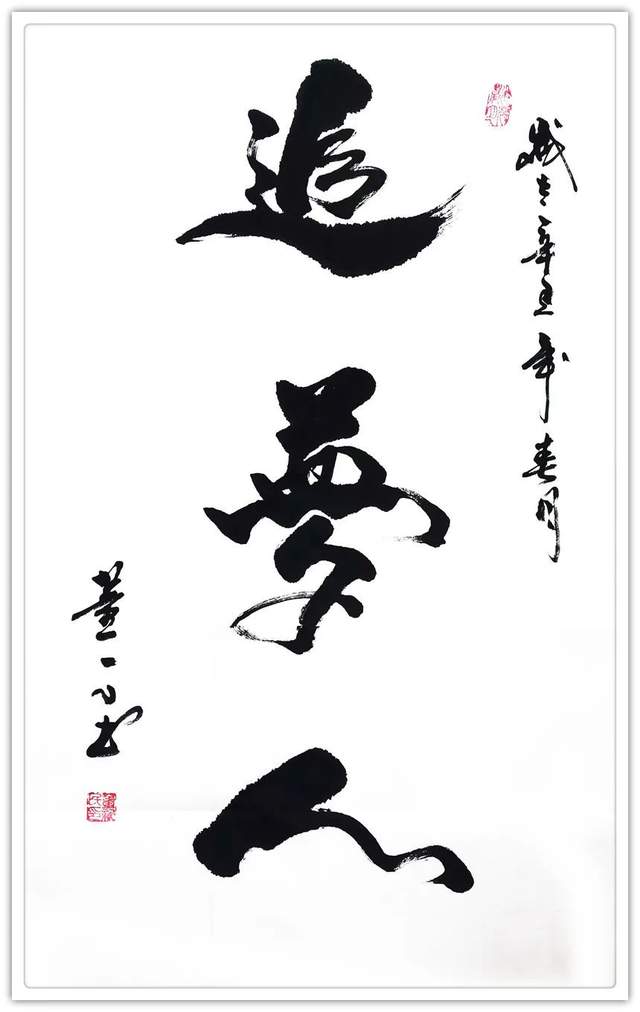 歲在辛丑年春月
追夢人
董一書